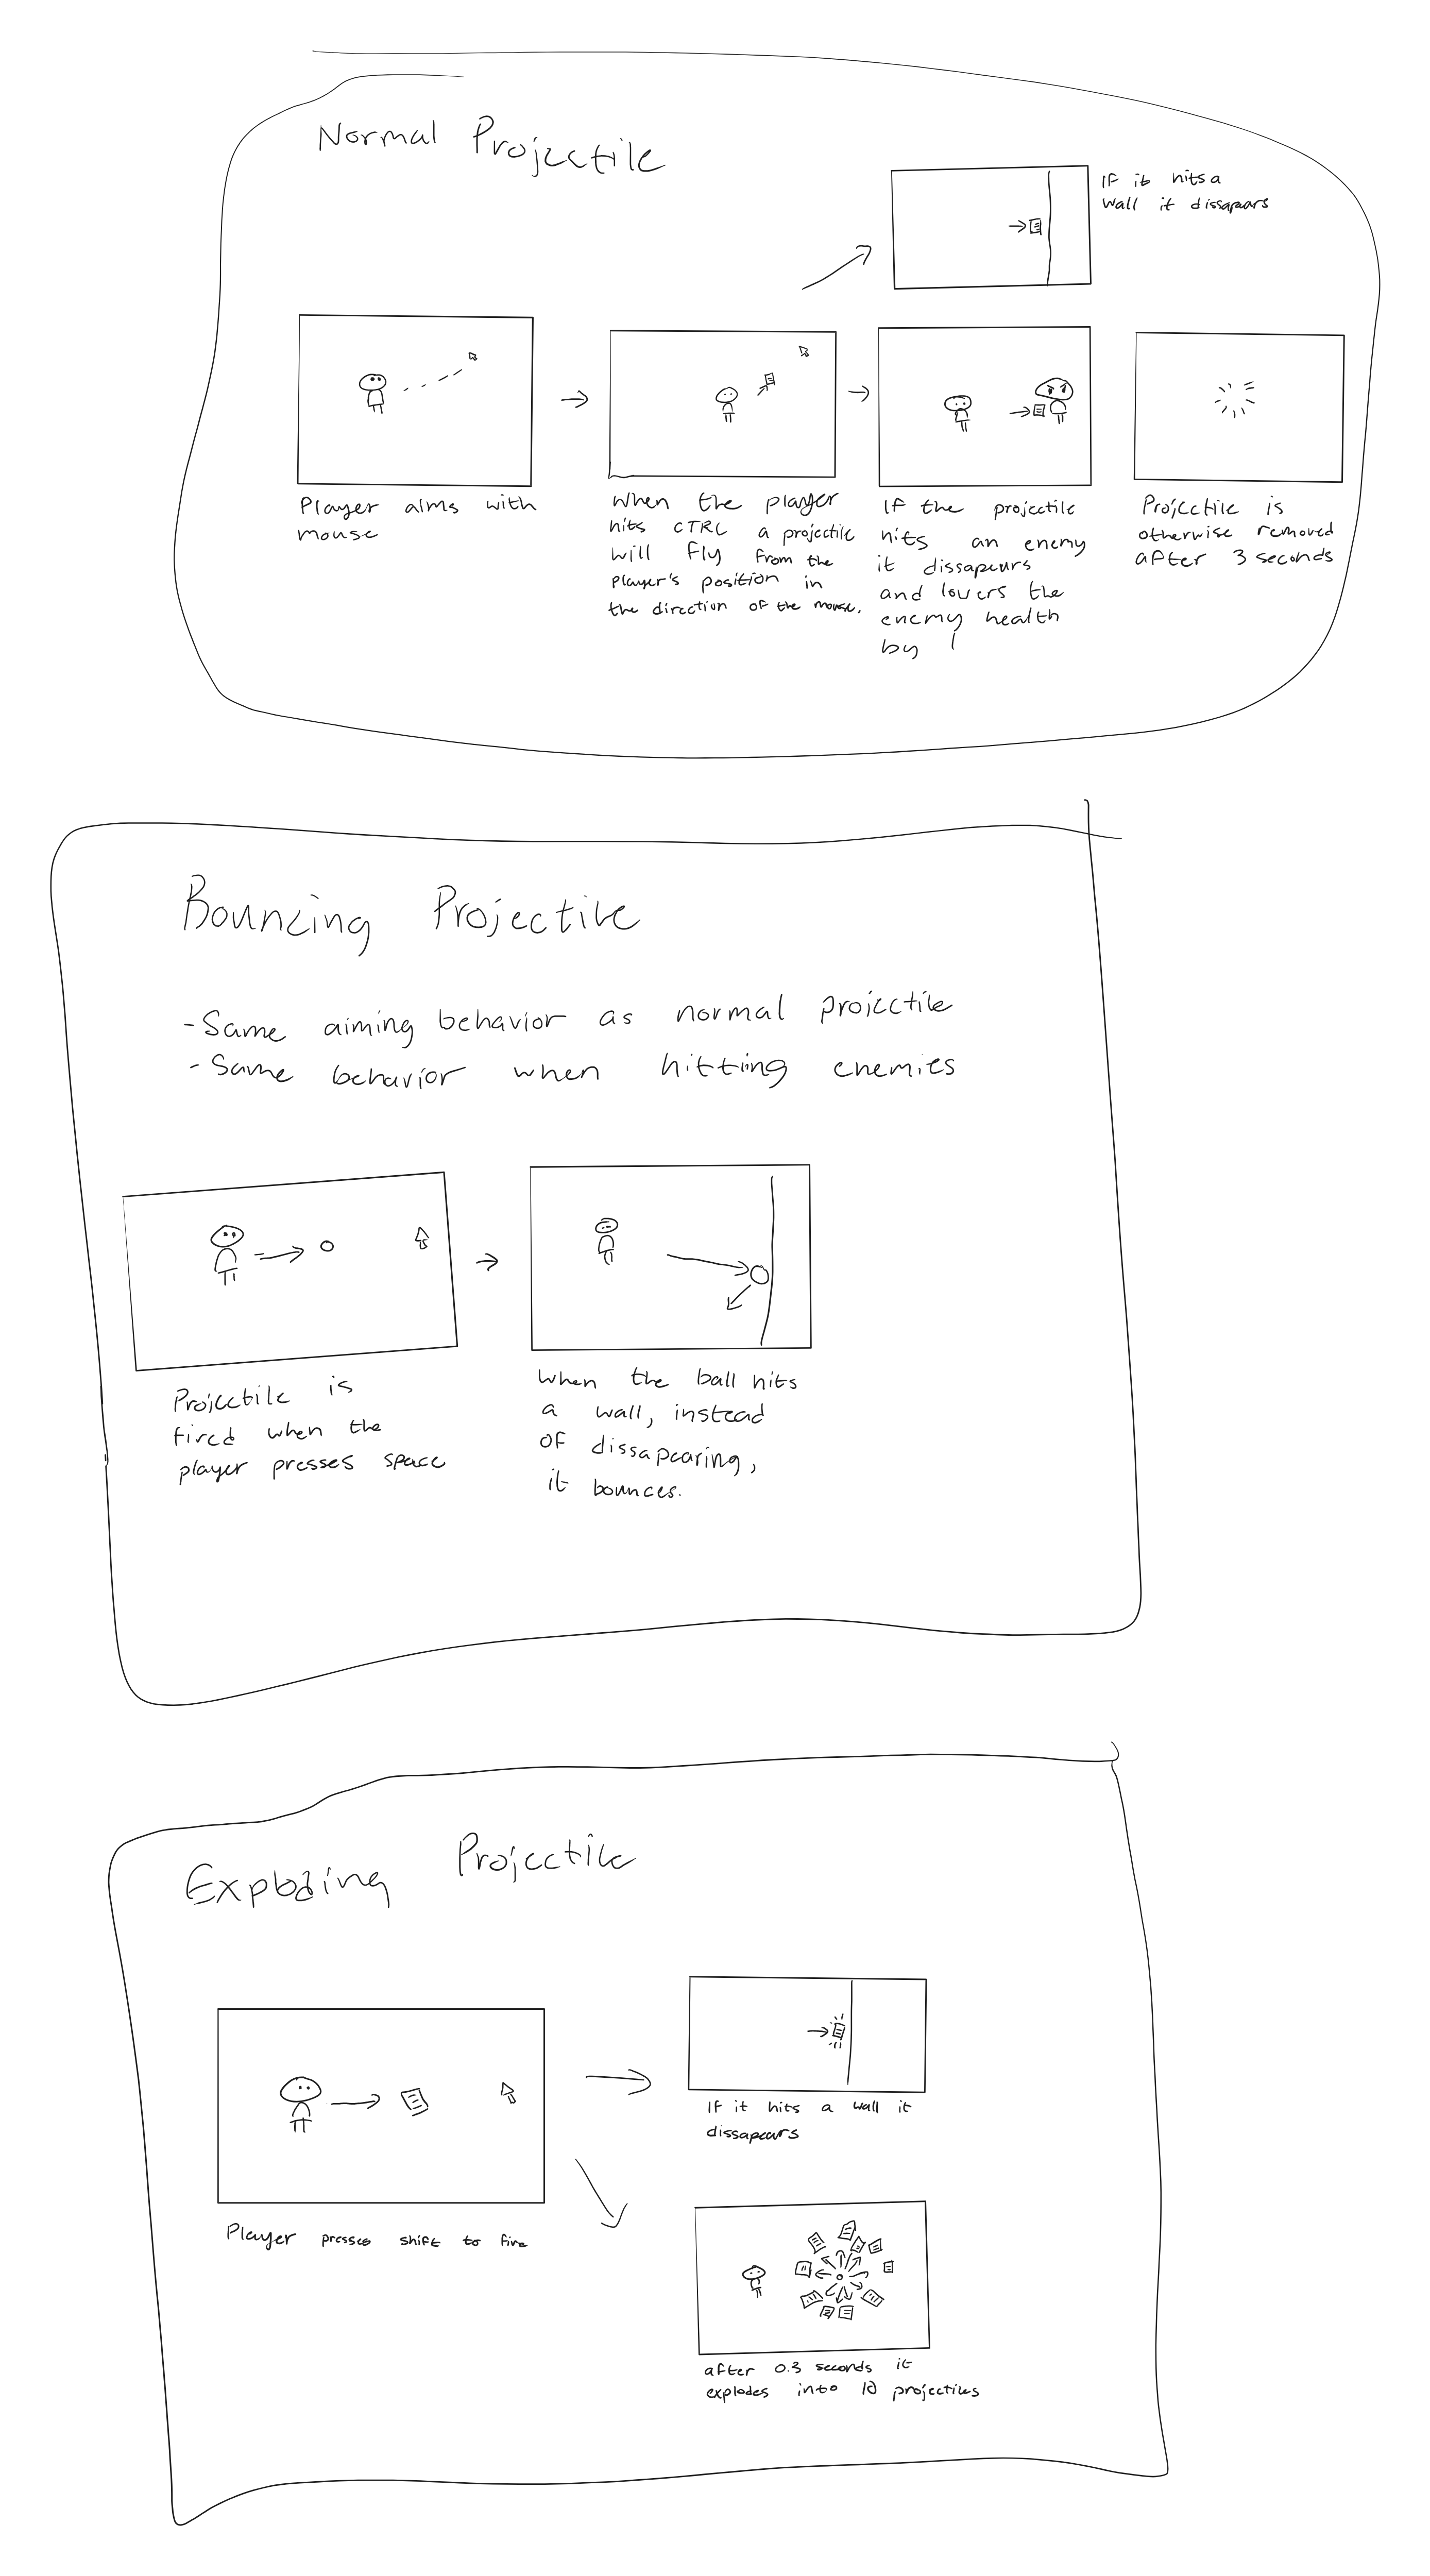 Normal Projectile
If it hits a
wall it dissapears
Player aims with
mouse
When the player
hits CTRL a projectile
will fly from the
player's position in
the direction of the mouse.
If the projectile
hits an enemy
it dissapears
and lowers the
enemy health
by 1
Projectile is
otherwise removed
after 3 seconds
Bouncing Projectile
- Same aiming behavior as normal projectile
- Same behavior when hitting enemies
Projectile is
fired when the
player presses space
When the ball hits
a wall, instead
of dissapearing,
it bounces.
Exploding Projectile
Player presses shift to fire
If it hits a wall it
dissapears
after 0.3 seconds it
explodes into 10 projectiles